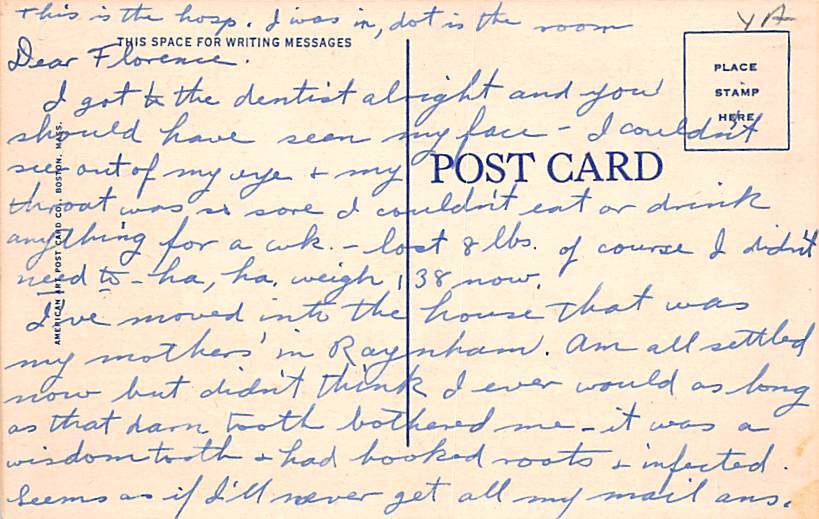 This is the hosp. I was in, dot is the room
YA
THIS SPACE FOR WRITING MESSAGES
Dear Florence.
I got to the dentist alright and you
should have seen my face - I couldn't
see out of my eye + my
throat was so sore I couldn't eat or drink
anything for a wk. - lost 8 lbs. of course I didn't
need to - ha, ha. weigh 138 now.
I've moved into the house that was
my mothers' in Raynham. Am all settled
now but didn't think I ever would as long
as that darn tooth bothered me - it was a
wisdom tooth + had hooked roots + infected.
Seems as if I'll never get all my mail ans.
POST CARD
PLACE
STAMP
HERE
AMERICAN ART POST CARD CO., BOSTON, MASS.